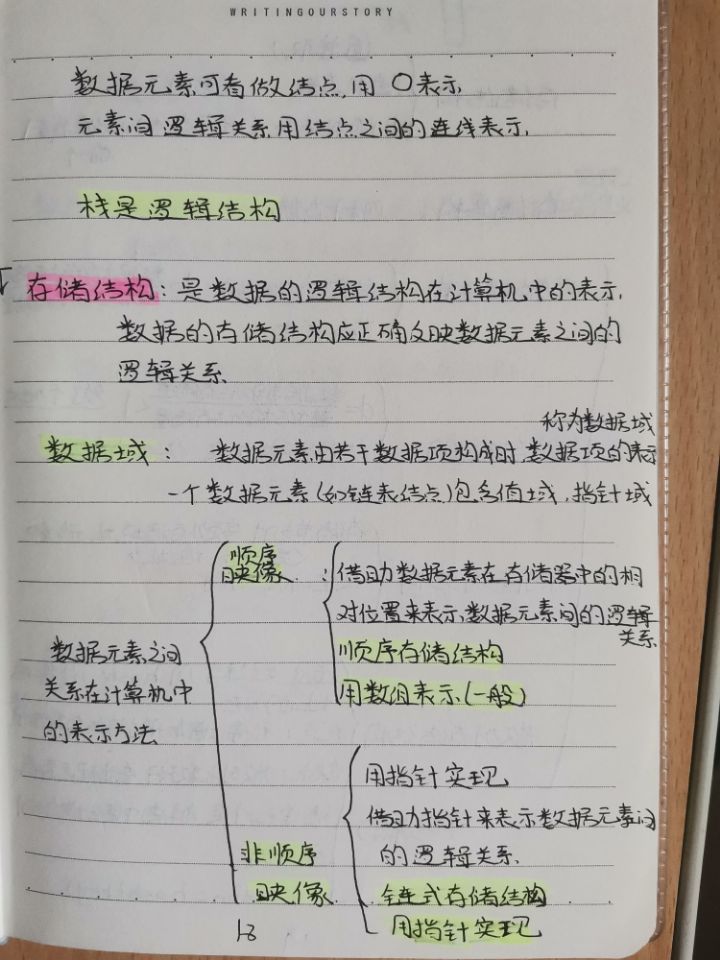 WRITINGOURSTORY
数据元素可看做结点,用○表示
元素间逻辑关系用结点之间的连线表示.
栈是逻辑结构
存储结构:是数据的逻辑结构在计算机中的表示.
数据的存储结构应正确反映数据元素之间的
逻辑关系.
称为数据域
数据域: 数据元素由若干数据项构成时,数据项的表示
一个数据元素(如链表结点)包含值域,指针域
顺序
映像:
借助数据元素在存储器中的相
对位置来表示,数据元素间的逻辑
关系
顺序存储结构
用数组表示(一般)
数据元素之间
关系在计算机中
的表示方法
非顺序
映像
用指针实现
借助指针来表示数据元素间
的逻辑关系.
链式存储结构
用指针实现